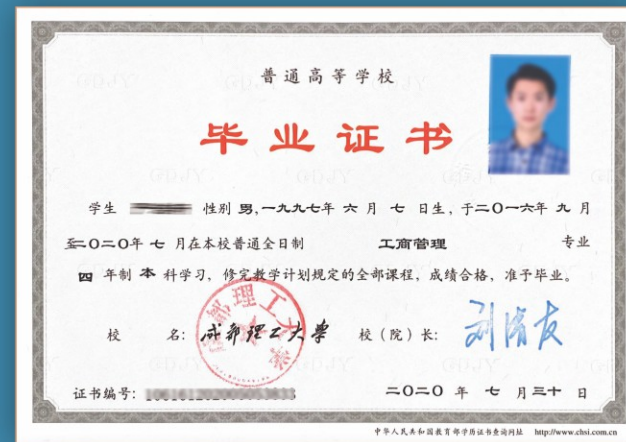 普通高等学校
毕业证书
学生 性别 男,一九九七年 六 月 七 日生，于二〇一六年 九 月
至二〇二〇年 七 月在本校普通全日制 工商管理 专业
四 年制 本 科学习，修完教学计划规定的全部课程，成绩合格，准予毕业。
校 名: 成都理工大学 校（院）长: 刘清友
证书编号:
二〇二〇 年 七 月三十 日
中华人民共和国教育部学历证书查询网址 http://www.chsi.com.cn